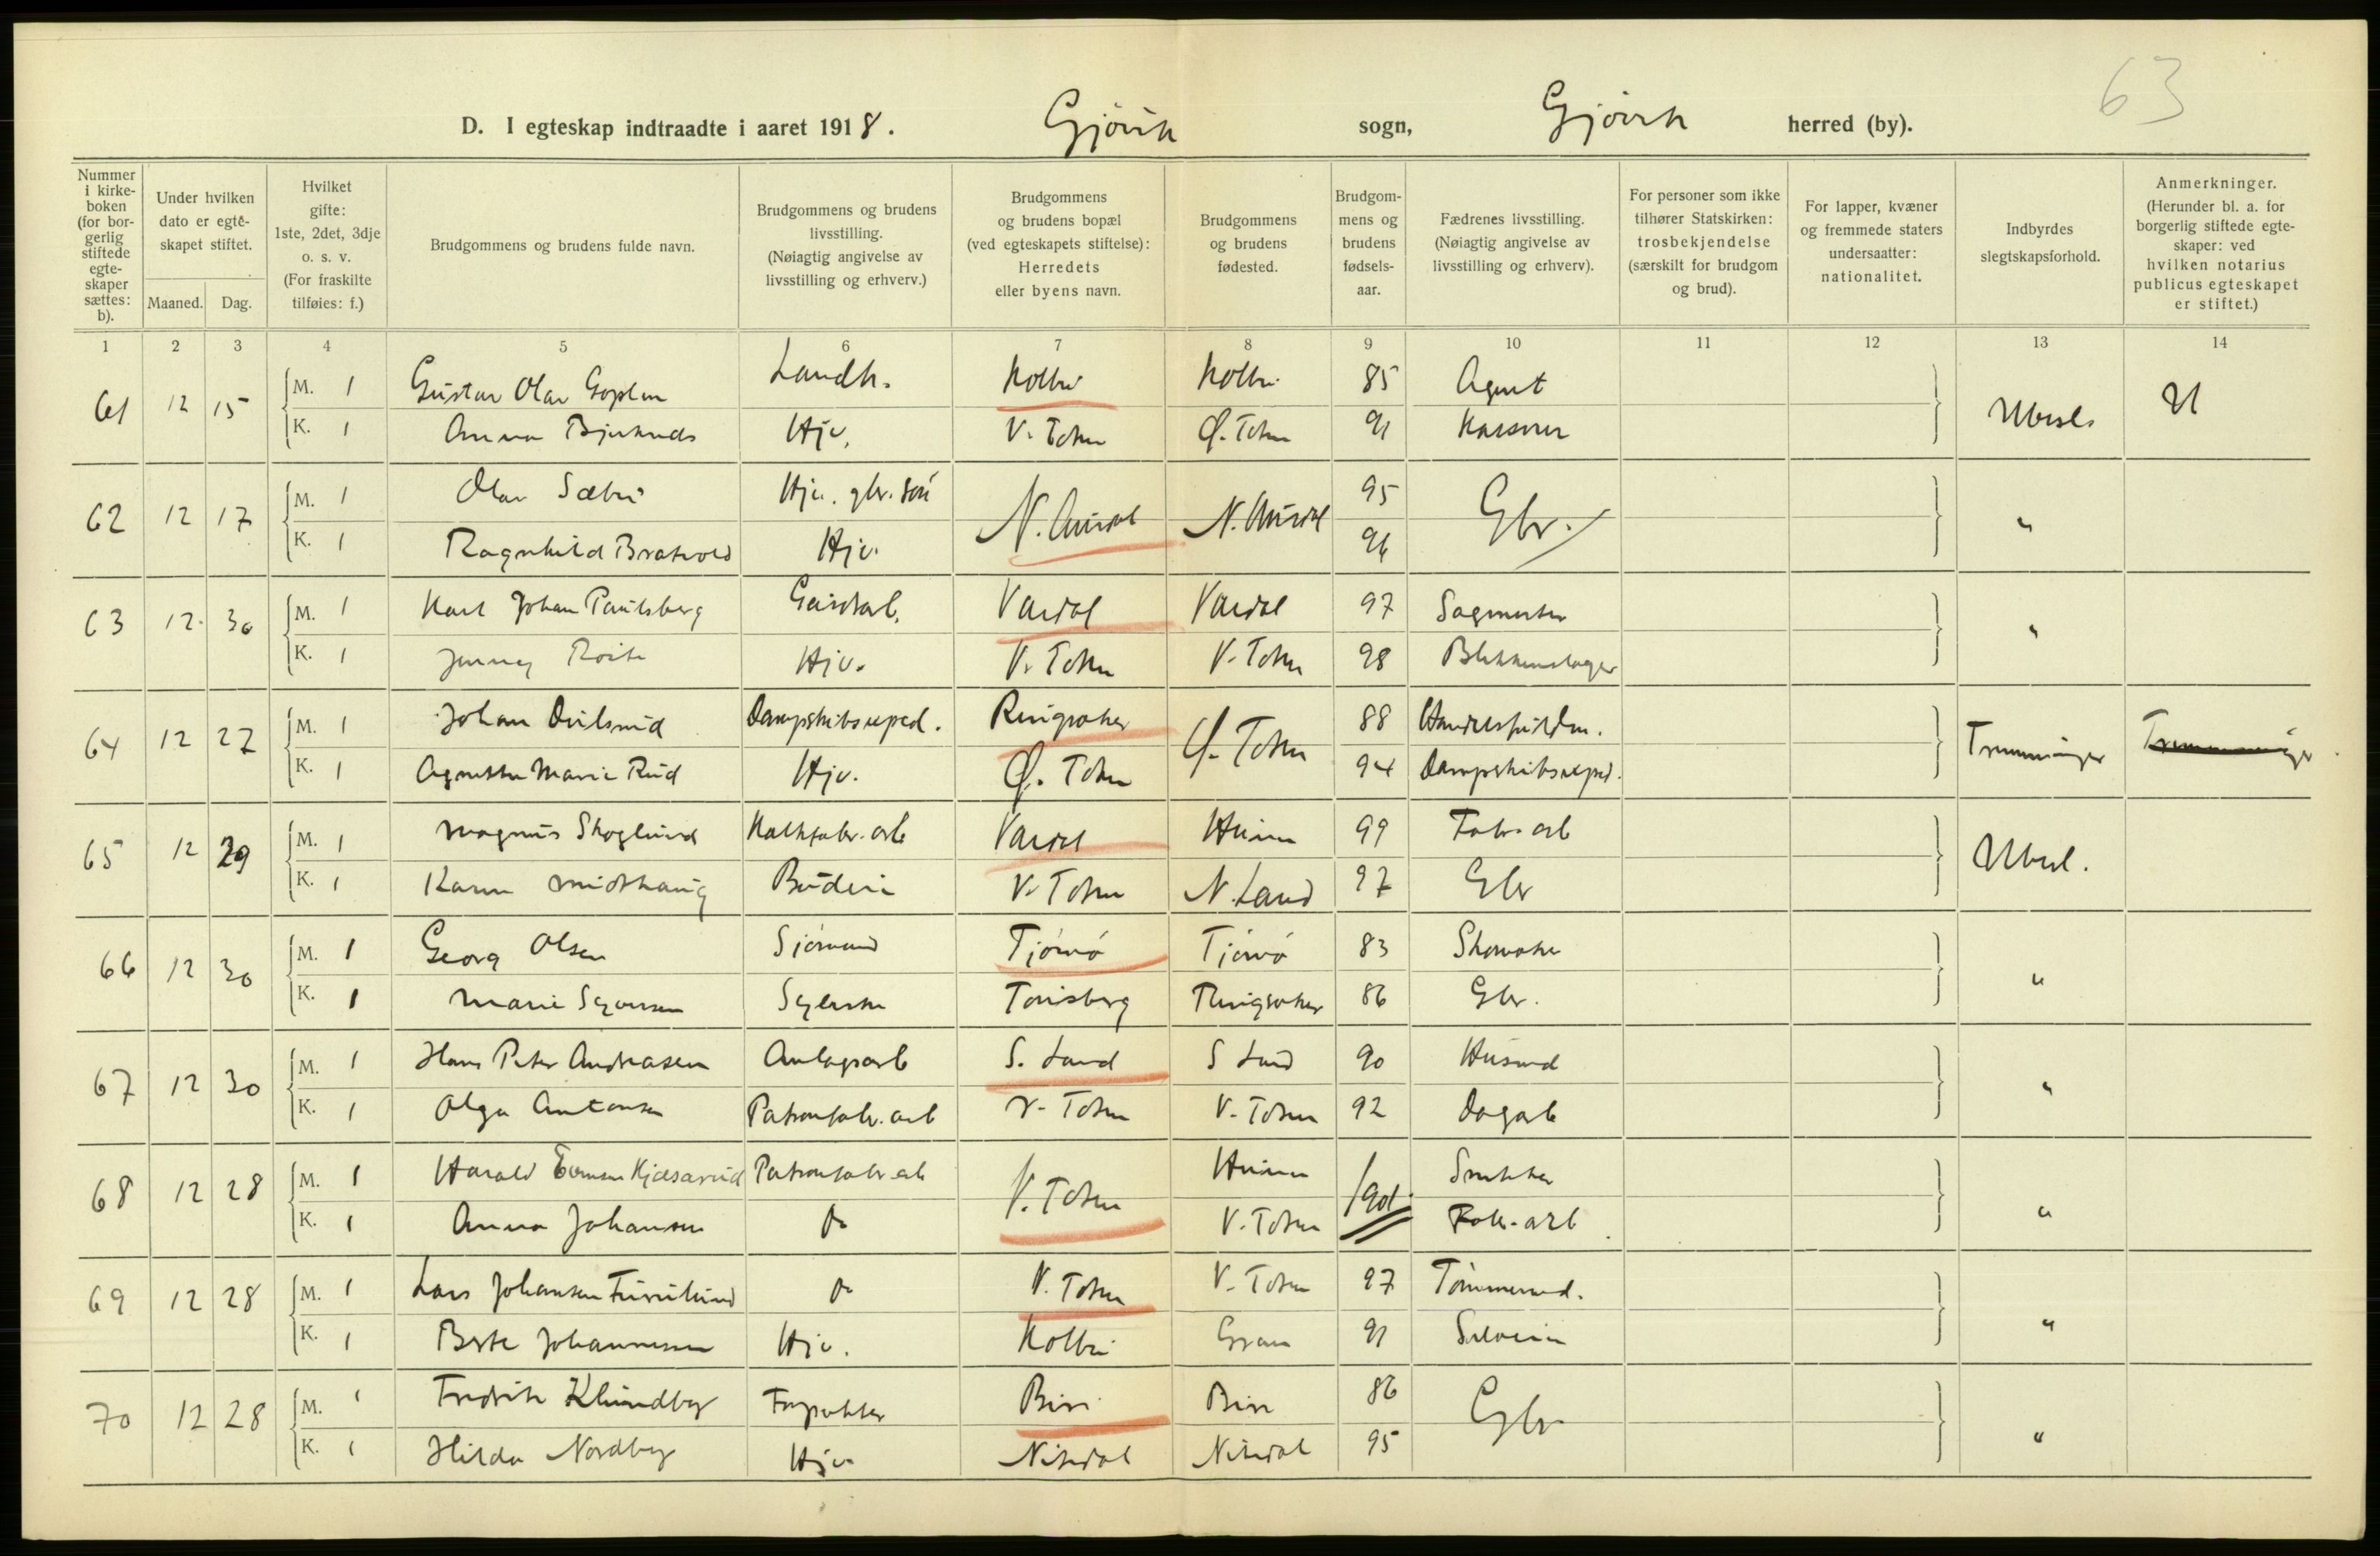 63
D. I egteskap indtraadte i aaret 1918. Gjøvik sogn, Gjøvik herred (by).
Nummer i kirke-boken (for bor-gerlig stiftede egte-skaper sættes: b).
Under hvilken dato er egte-skapet stiftet.
Maaned. Dag.
Hvilket gifte: 1ste, 2det, 3dje o. s. v. (For fraskilte tilføies: f.)
Brudgommens og brudens fulde navn.
Brudgommens og brudens livsstilling. (Nøiagtig angivelse av livsstilling og erhverv.)
Brudgommens og brudens bopæl (ved egteskapets stiftelse): Herredets eller byens navn.
Brudgommens og brudens fødested.
Brudgom-mens og brudens fødsels-aar.
Fædrenes livsstilling. (Nøiagtig angivelse av livsstilling og erhverv).
For personer som ikke tilhører Statskirken: trosbekjendelse (særskilt for brudgom og brud).
For lapper, kvæner og fremmede staters undersaatter: nationalitet.
Indbyrdes slegtskapsforhold.
Anmerkninger. (Herunder bl. a. for borgerlig stiftede egte-skaper: ved hvilken notarius publicus egteskapet er stiftet.)
1 2 3 4 5 6 7 8 9 10 11 12 13 14
61 12 15 M. 1 Gustav Olav Goplen Landh. Kolbu Kolbu 85 Agent Ubesl.
K. 1 Anna Hjv. V. Toten Ø. Toten 91 Kasserer
62 12 17 M. 1 Olav Sæbu Hjv. gbr. søn N. Aurdal N. Aurdal 95 Gbr. "
K. 1 Ragnhild Bratvold Hjv. 96
63 12 30 M. 1 Karl Johan Paulsberg Gaardsarb. Vardal Vardal 97 Sagmester "
K. 1 Jenny Hjv. V. Toten V. Toten 98 Blikkenslager
64 12 27 M. 1 Johan Dampskibsexped. Ringsaker Ø. Toten 88 Handelsfuldm. Tremenninger Tremenninger
K. 1 Agnethe Marie Rud Hjv. Ø. Toten 94 Dampskibsexped.
65 12 29 M. 1 Magnus Skoglund Kalkfabr. arb Vardal Hurum 99 Fabr. arb Ubesl.
K. 1 Karen Midthaug Budeie V. Toten N. Land 97 Gbr
66 12 30 M. 1 Georg Olsen Sjømand Tjømø Tjømø 83 Skomaker "
K. 1 Marie Syversen Syerske Tønsberg Ringsaker 86 Gbr.
67 12 30 M. 1 Hans Peter Andreasen Anlægsarb S. Land S Land 90 Husmd "
K. 1 Olga Antonsen Patronfabr. arb V. Toten V. Toten 92 Dagarb
68 12 28 M. 1 Harald Kjæsarud Patronfabr. arb V. Toten Hurum 1901 Snekker "
K. 1 Anna Johansen do V. Toten Fabr. arb.
69 12 28 M. 1 Lars Johansen Furulund do V. Toten V. Toten 97 Tømmermd. "
K. 1 Berte Johannessen Hjv. Kolbu Gran 91
70 12 28 M. 1 Fredrik Klundby Forpakter Biri Biri 86 Gbr. "
K. 1 Hilda Nordby Hjv. Nitedal Nitedal 95